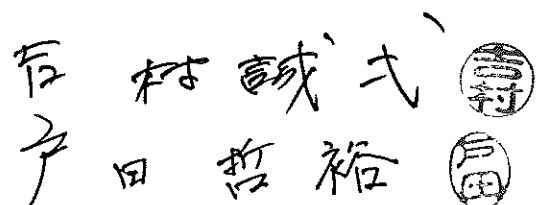 吉村誠弌 吉村
戸田哲裕 戸田